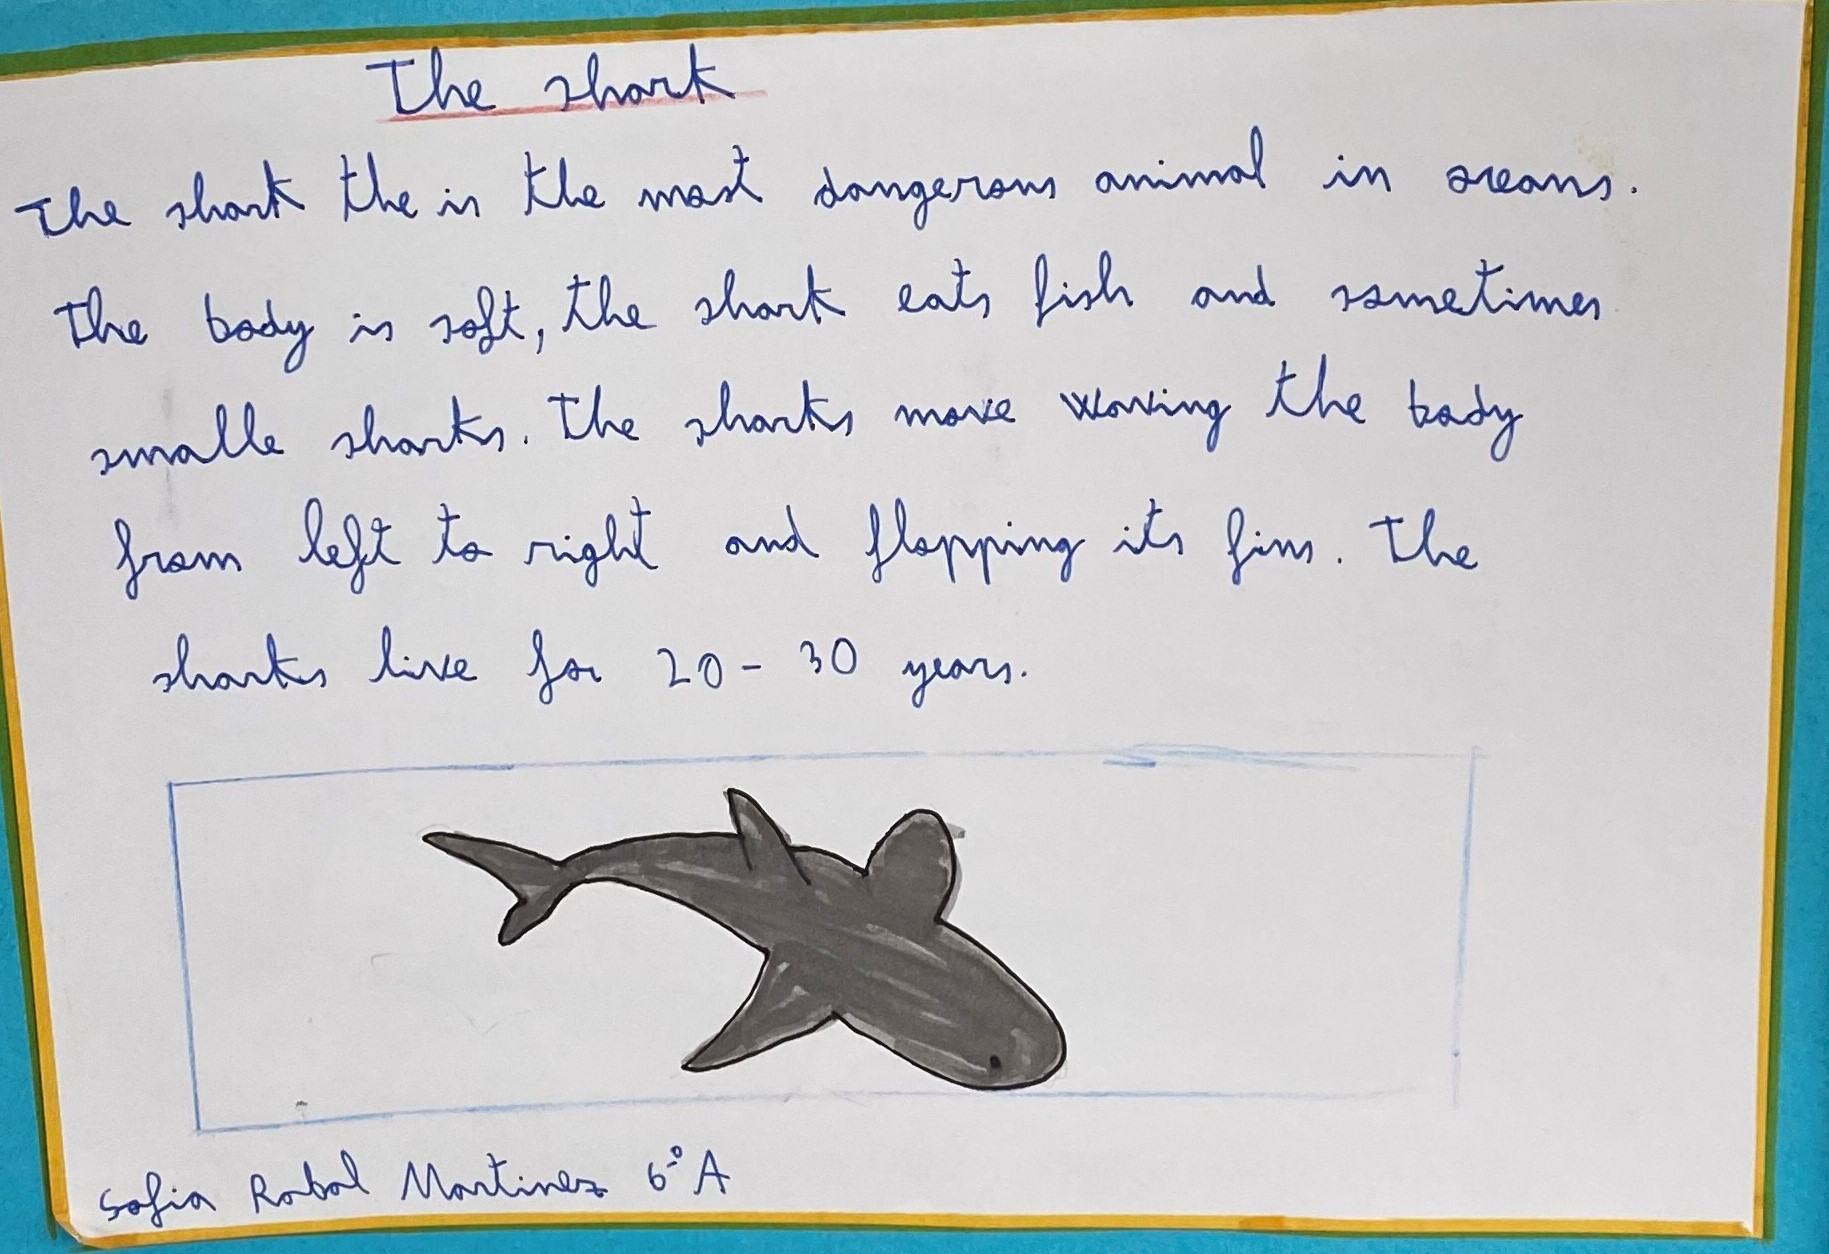 The shark
The shark the is the most dangerous animal in oceans.
The body is soft, the shark eats fish and sometimes
smalle sharks. The sharks move waving the body
from left to right and flapping its fins. The
sharks live for 20-30 years.
Sofia Rabal Martinez 6º A